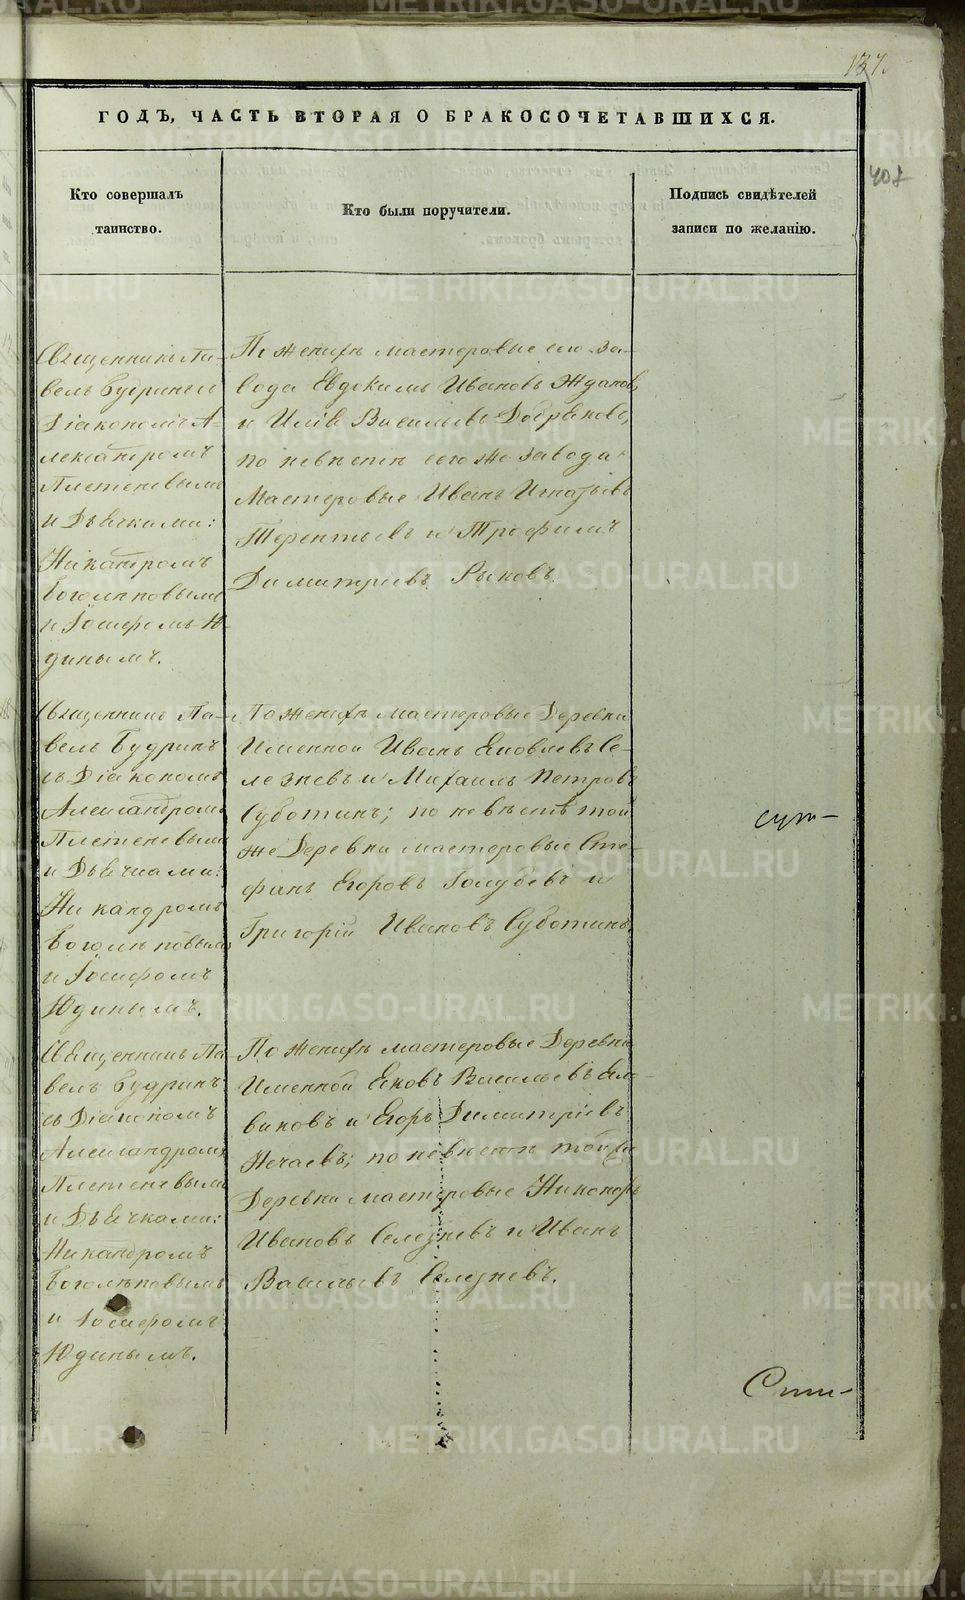 137.
ГОДЪ, ЧАСТЬ ВТОРАЯ О БРАКОСОЧЕТАВШИХСЯ.
407
Кто совершалъ
таинство.
Кто были поручители.
Подпись свидѣтелей
записи по желанію.
Священникъ Па-
велъ Будринъ съ
Діакономъ А-
лександромъ
Плетеневымъ
и Дьячками:
Никандромъ
Боголѣповымъ
и Іосифомъ Ю-
динымъ.
По женихѣ мастеровые сего За-
вода Евдокимъ Ивановъ Ждановъ,
и Илія Васильевъ Добряковъ,
по невѣстѣ сего же завода
Мастеровые Иванъ Игнатьевъ
Терентьевъ и Трофимъ
Димитріевъ Рыковъ.
Священникъ Па-
велъ Будринъ
съ Діакономъ
Александромъ
Плетеневымъ
и Дьячками:
Никандромъ
Боголѣповымъ
и Іосифомъ
Юдинымъ.
По женихѣ мастеровые Деревни
Именной Иванъ Яковлевъ Се-
лезневъ и Михаилъ Петровъ
Суботинъ; по невѣстѣ той
же Деревни мастеровые Сте-
фанъ Егоровъ Голубевъ и
Григорій Ивановъ Суботинъ.
Священникъ Па-
велъ Будринъ
съ Діакономъ
Александромъ
Плетеневымъ
и Дьячками:
Никандромъ
Боголѣповымъ
и Іосифомъ
Юдинымъ.
По женихѣ мастеровые Деревни
Именной Яковъ Васильевъ
и Егоръ Димитріевъ
Нечаевъ; по невѣстѣ той же
Деревни мастеровые Никоноръ
Ивановъ Селезневъ и Иванъ
Васильевъ Селезневъ.
METRIKI.GASO-URAL.RU